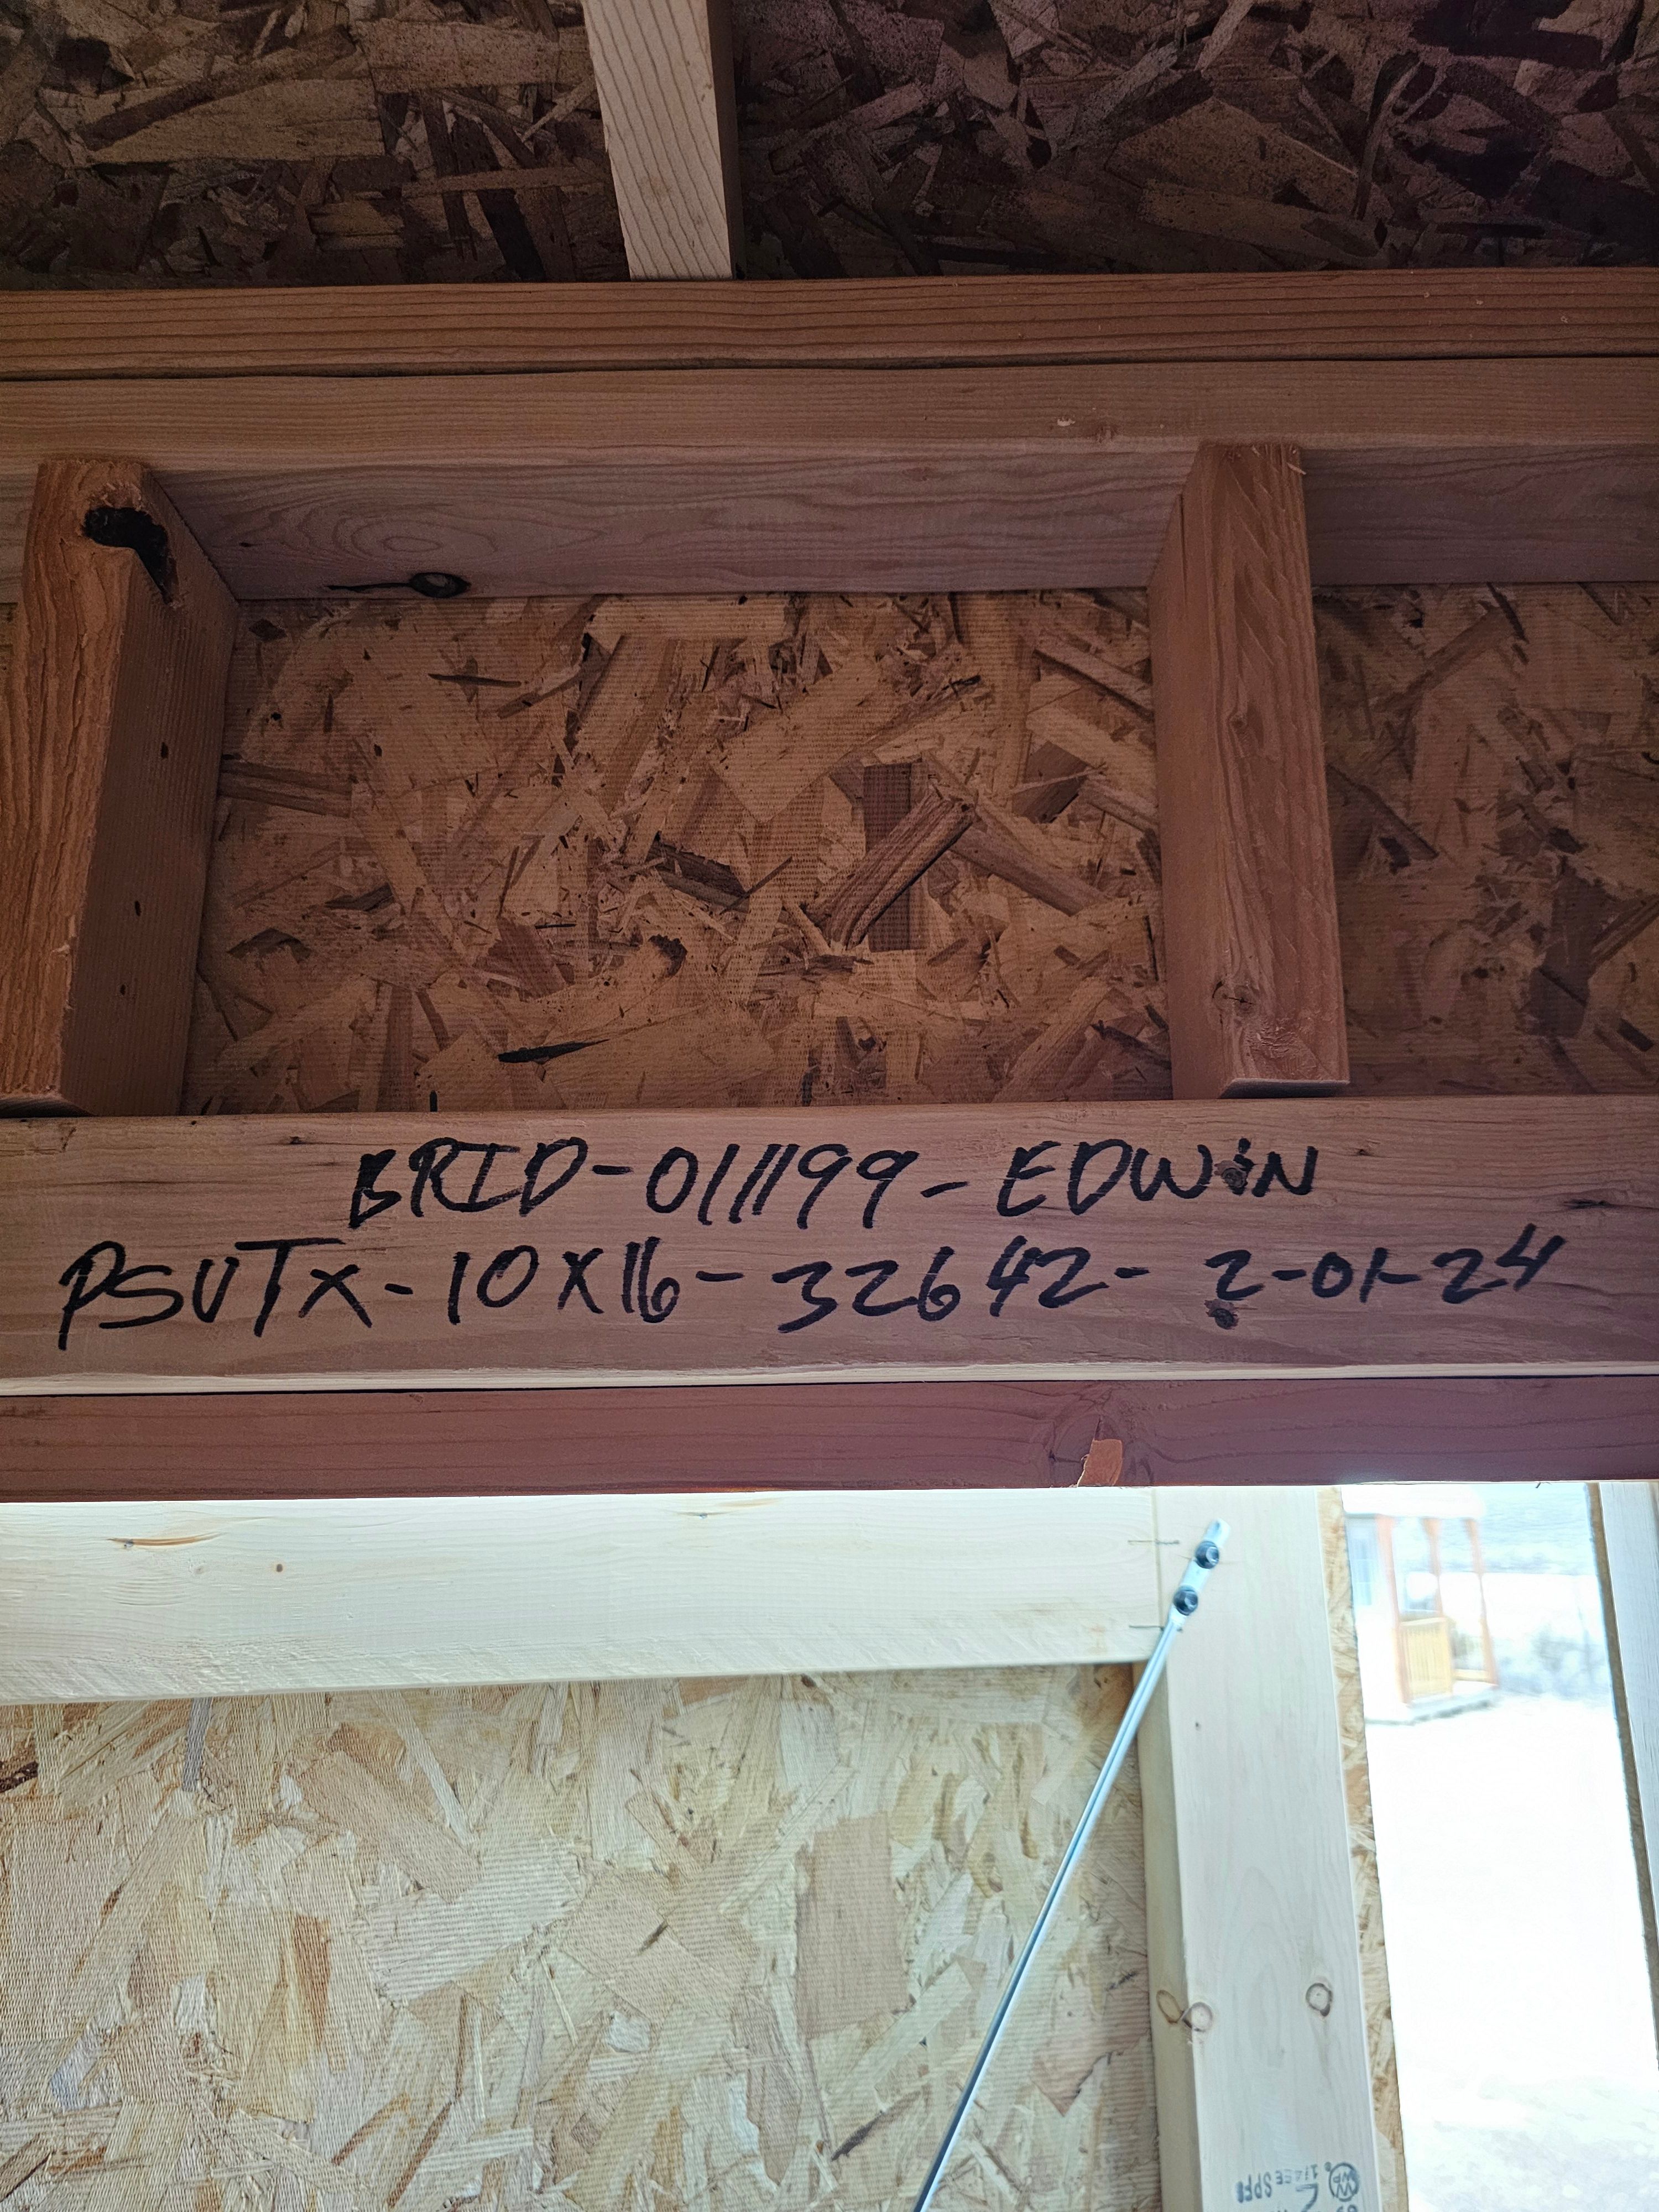 BRID-011199-EDWiN
PSUTX-10X16-32642-2-01-24